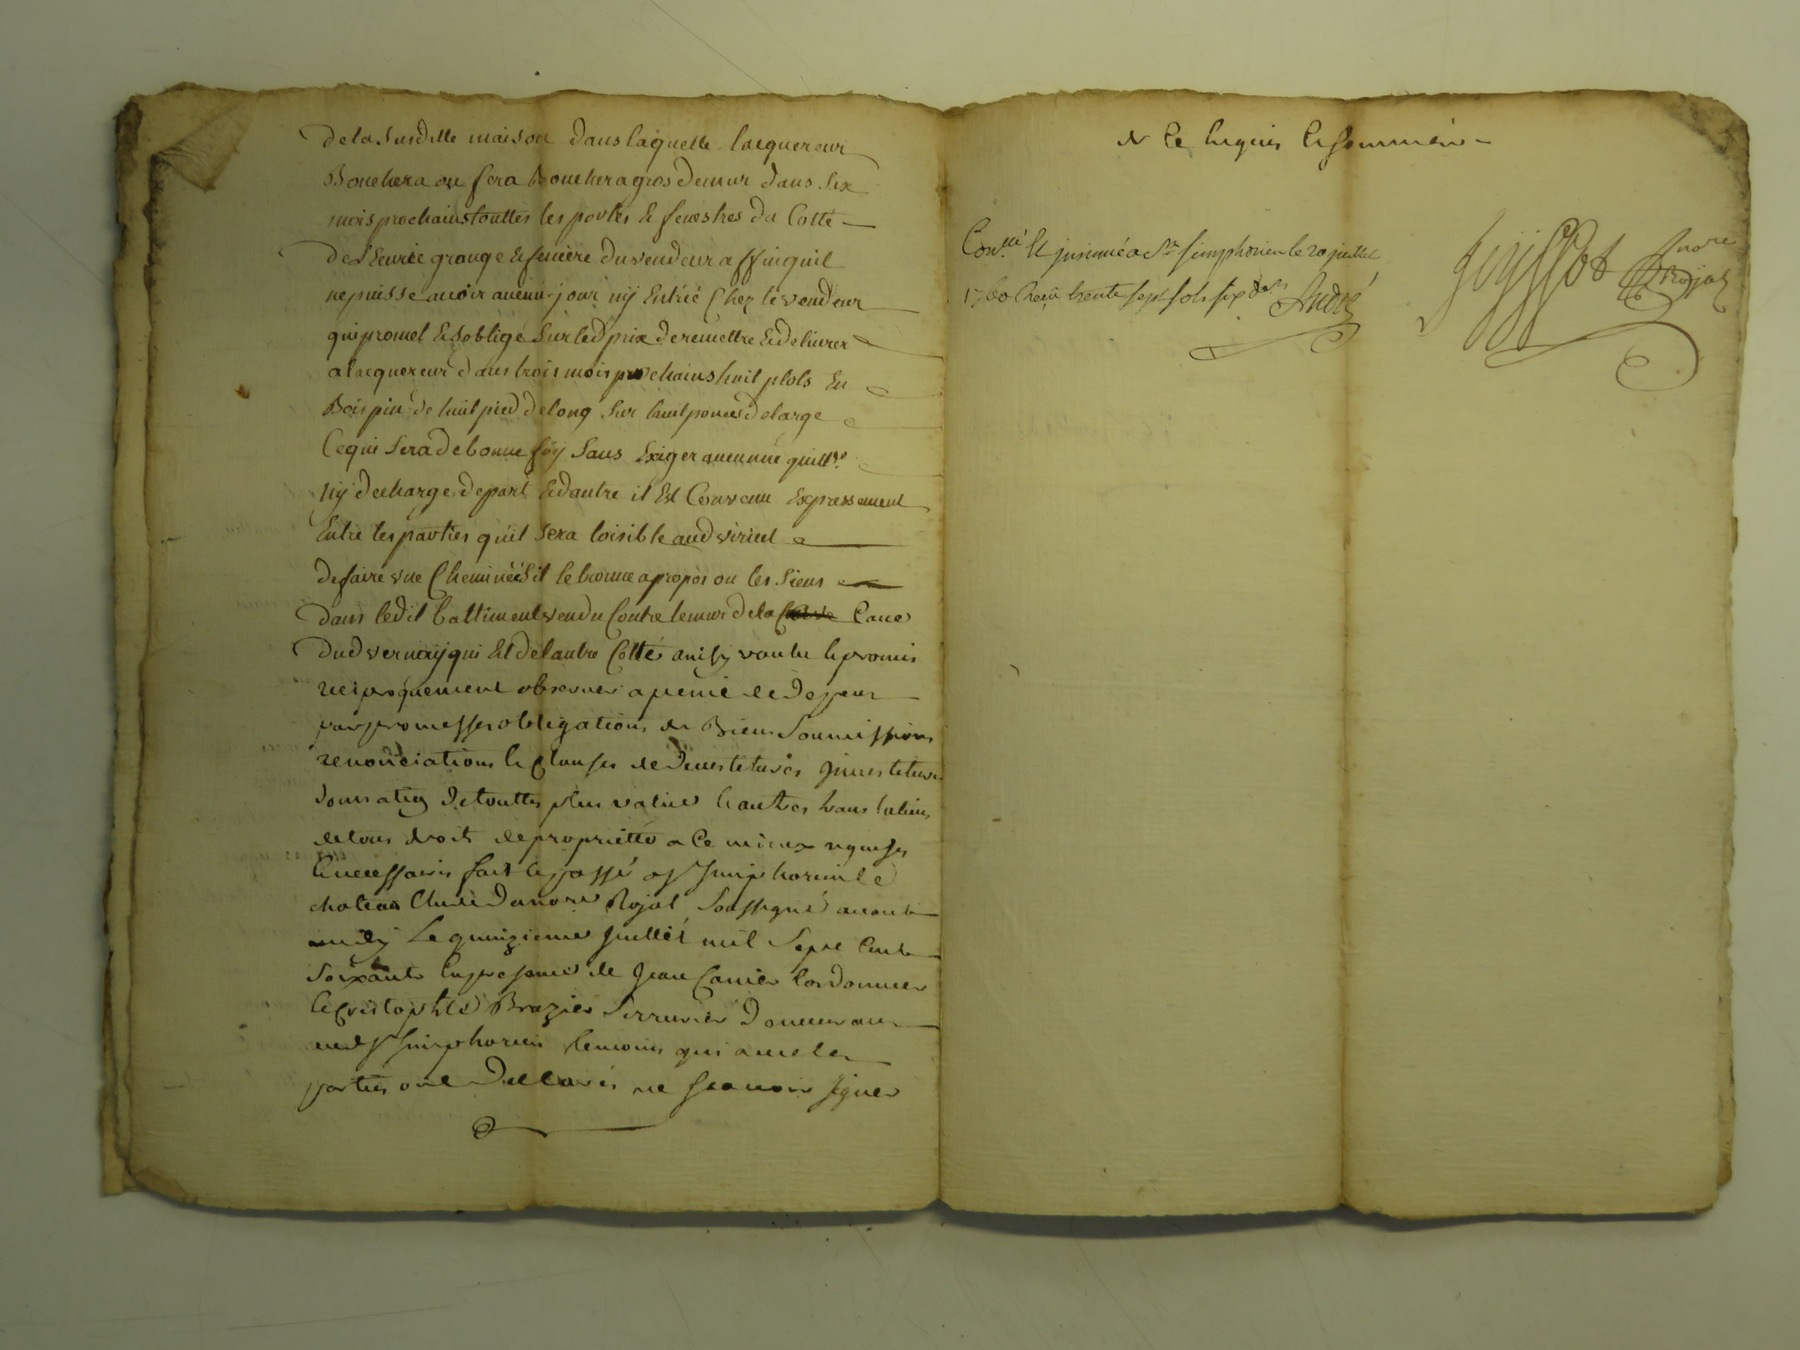 de la Susditte maison dans laquelle lacquereur
Bouchera ou fera Boucher a gros de mur dans Six
mois prochains touttes les portes & fenestres du Cotté
de Lecurie grange & feniere du vendeur affin quil
ne puisse avoir aucun jour ny Entréé Chez le vendeur
qui promet & Soblige Sur led prix de remettre & delivrer
a lacquereur dans trois mois prochains huit plots En
Bois pin de huit pied de long Sur huit pouces de large
Ce qui Sera de bonne foy Sans Exiger aucunne quitt.e
Ny decharge de part & dautre il Est Convenu Expressement
Entre les parties qu'il Sera loisible aud
de faire une Cheminéé Sil le trouve apropos ou les Siens
dans ledit battiment vendu Contre le mur de la Cave
dud vernay qui Est de lautre Cotté ainsy voulu & promis
reciproquement observer a peine de
par promesses obligations de Biens Soumissions
renonciations & Clauses de devestitures investitures
de touttes plus values & autres translations
de tous droit de proprietté a Ce mieux requises
& necessaires fait & passé a St Simphorien le
chateau Etude du nore Rojat Soussigné avant
midy Le quinzieme Juillet mil Sept Cent
Soixante En presence de Jean Canier Cordonnier
& Cristophle Brazier Serrurier demeurant
aud St Simphorien temoins qui avec les
parties ont declarés ne Scavoir Signer
de Ce Enquis & Sommés
Con.llé Et insinué a St Simphorien le 20 juillet
1760 Reçu trente sept sols six d.ers André
nore
Rojat